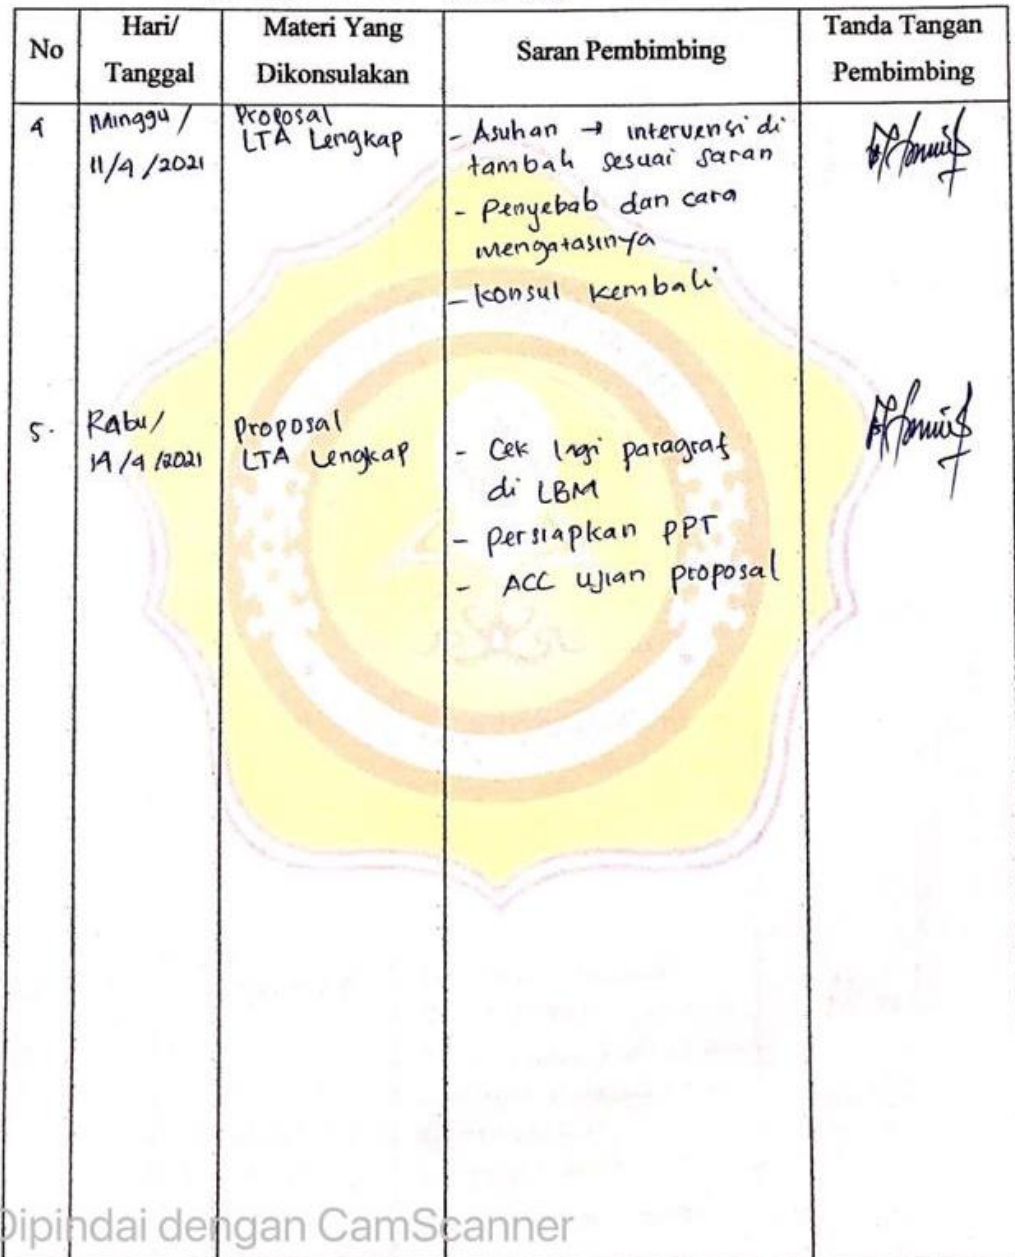 No
Hari/
Tanggal
Materi Yang
Dikonsulakan
Saran Pembimbing
Tanda Tangan
Pembimbing
4
Minggu /
11/4/2021
Proposal
LTA Lengkap
- Asuhan → intervensi di
tambah sesuai saran
- Penyebab dan cara
mengatasinya
- Konsul kembali
5.
Rabu/
14/4/2021
Proposal
LTA Lengkap
- Cek lagi paragraf
di LBM
- Persiapkan PPT
- ACC Ujian proposal
Dipindai dengan CamScanner